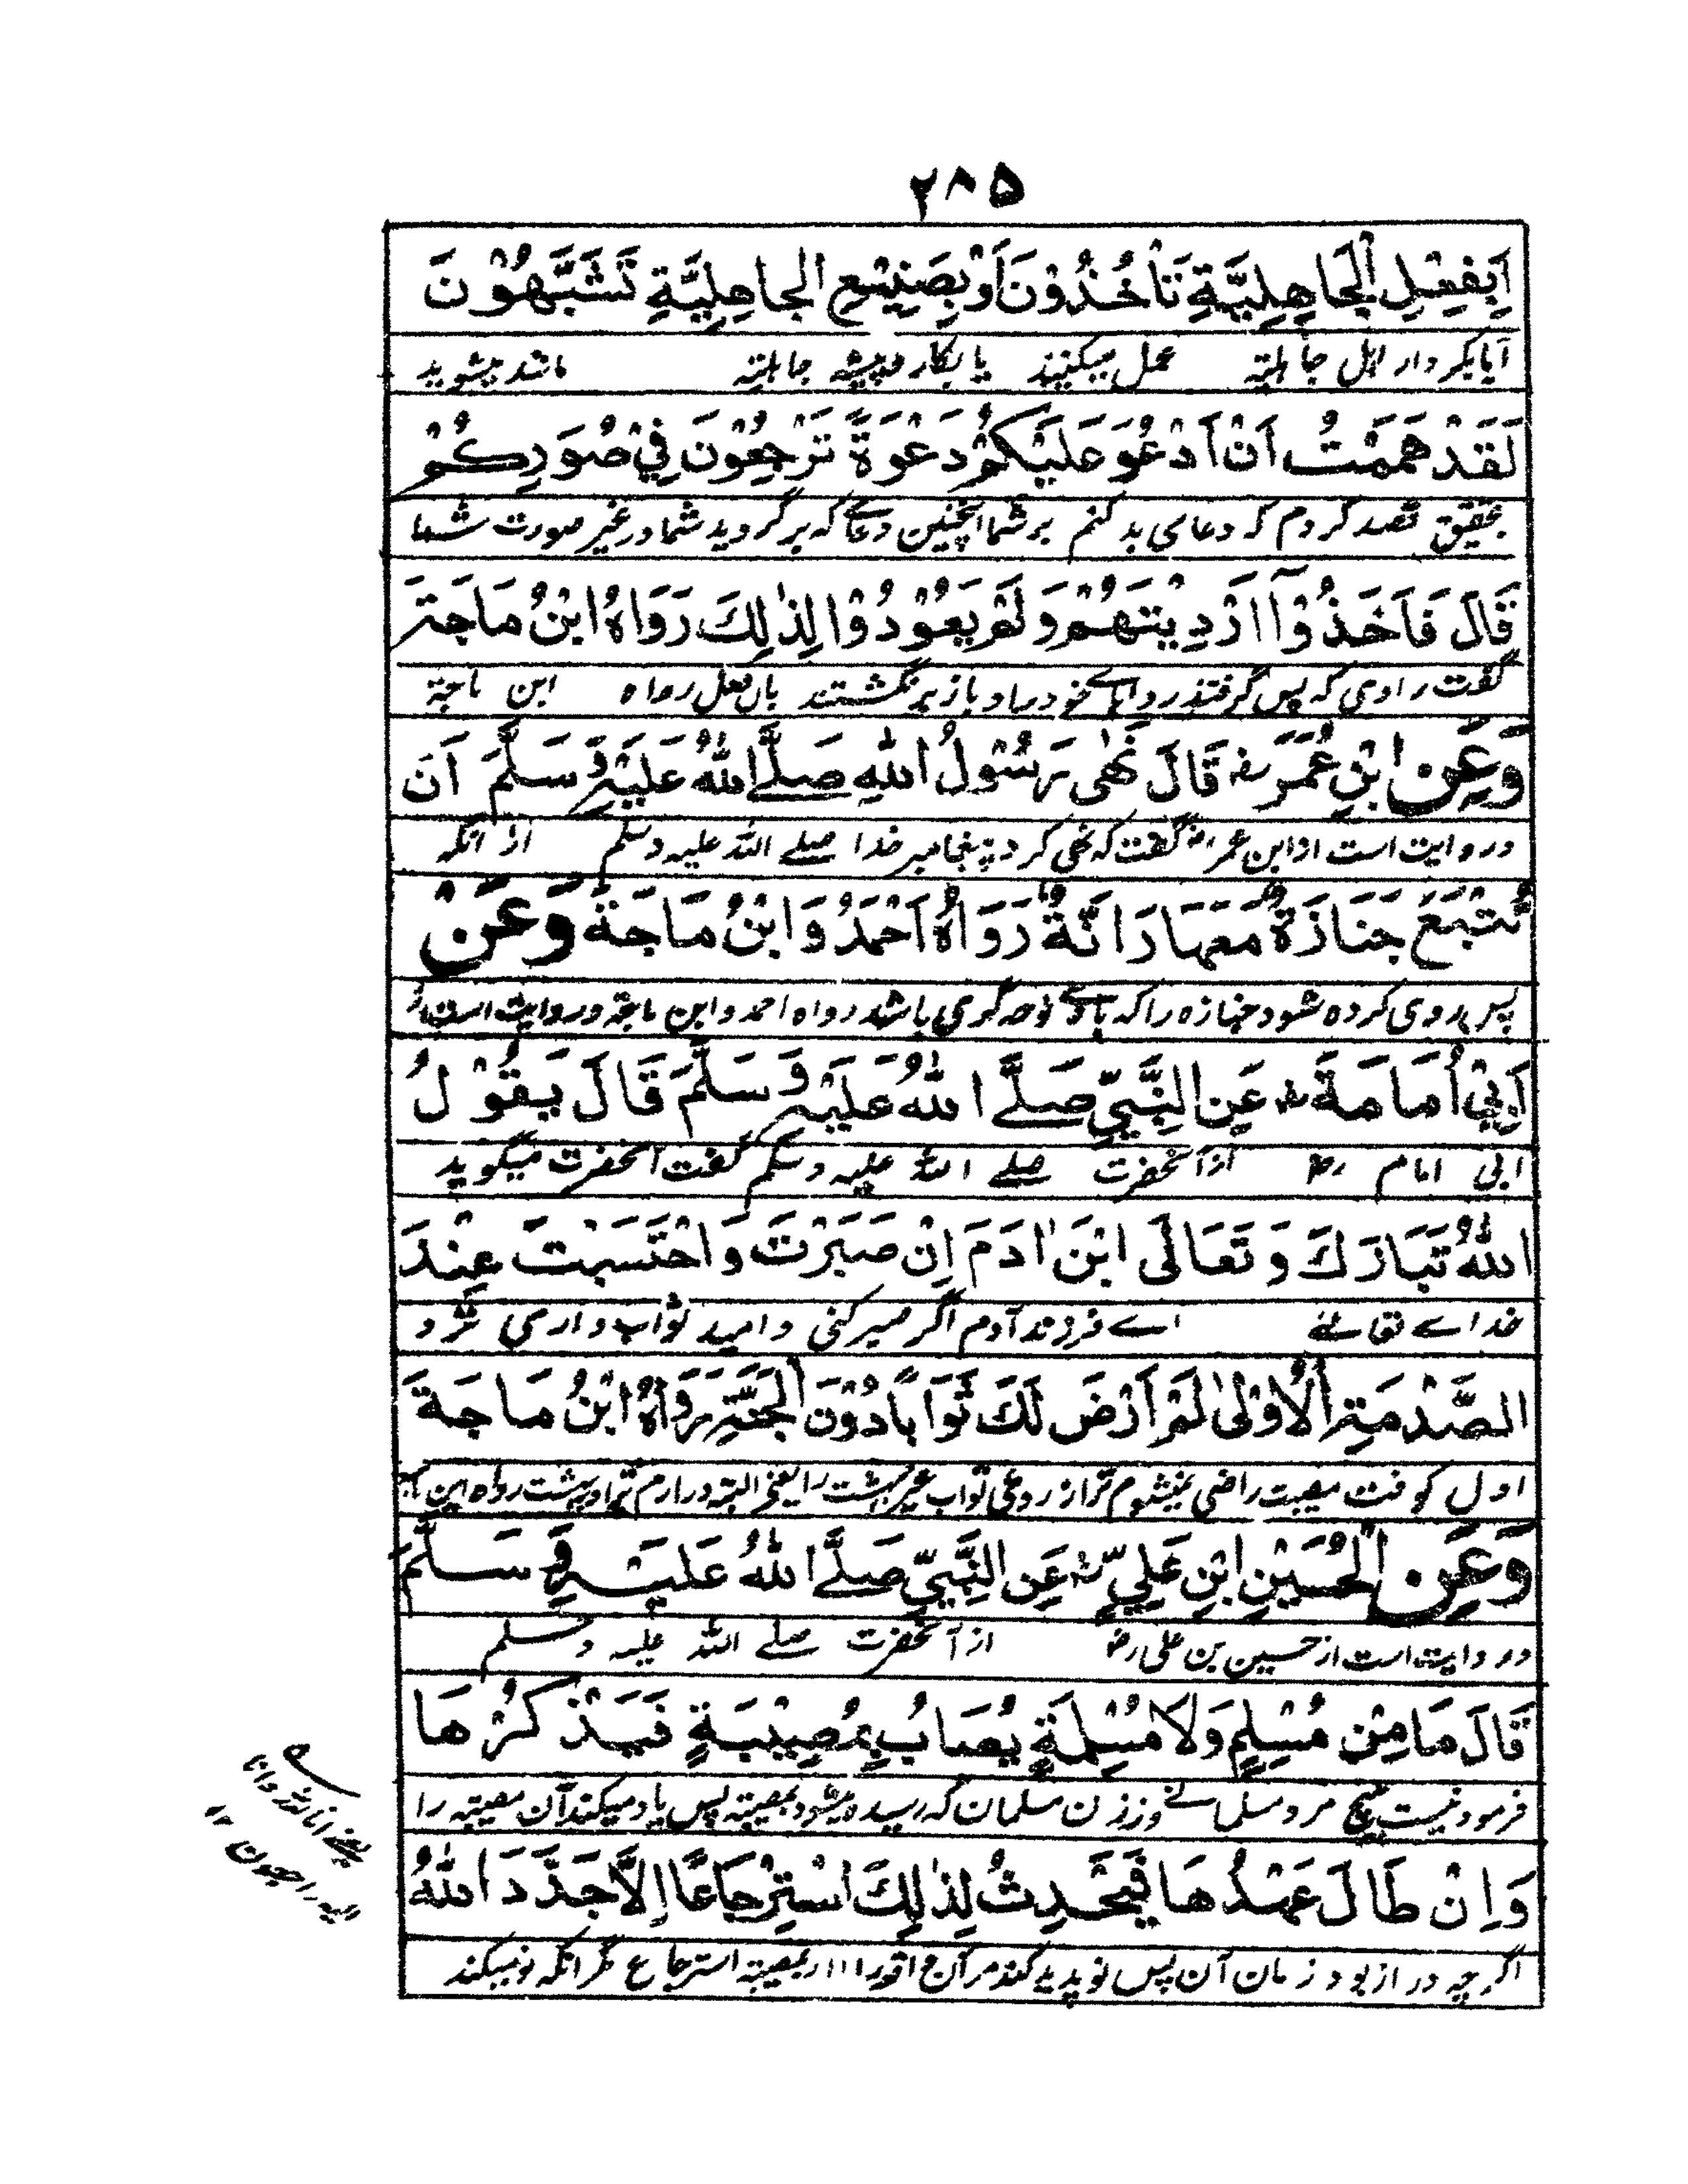 ۲۸۵
اَبِفِعْلِ الْجَاهِلِيَّةِ تَأْخُذُوْنَ اَوْ بِصَنِيْعِ الْجَاهِلِيَّةِ تَشَبَّهُوْنَ
آیا بکردار اہل جاہلیّہ عمل میکنید یا بکار و پیشہ جاہلیّہ مانند میشوید
لَقَدْ هَمَمْتُ اَنْ اَدْعُوَ عَلَيْكُمْ دَعْوَةً تَرْجِعُوْنَ فِيْ صُوَرِكُمْ
بتحقیق قصد کردم کہ دعای بد کنم بر شما اینچنین دعائے کہ بر گردید شما در غیر صورت شما
قَالَ فَاَخَذُوْآ اَرْدِيَتَهُمْ وَلَمْ يَعُوْدُوْا لِذٰلِكَ رَوَاهُ ابْنُ مَاجَةَ
گفت راوی کہ پس گرفتند رداہائے خود را و باز بر نگشتند بآن فعل رواہ ابن ماجۃ
وَعَنِ ابْنِ عُمَرَ رضہ قَالَ نَهٰى رَسُوْلُ اللّٰهِ صَلَّے اللّٰهُ عَلَيْهِ وَسَلَّمَ اَنْ
و روایت است از ابن عمر رض گفت کہ نہی کرد پیغامبر خدا صلے اللہ علیہ وسلم از انکہ
تُتْبَعَ جَنَازَةٌ مَعَهَا رَانَّةٌ رَوَاهُ اَحْمَدُ وَابْنُ مَاجَةَ وَعَنْ
پس پروی کردہ شود جنازہ را کہ باوے نوحہ گری باشد رواہ احمد و ابن ماجۃ و روایت است از
اَبِيْ اُمَامَةَ رضہ عَنِ النَّبِيِّ صَلَّے اللّٰهُ عَلَيْهِ وَسَلَّمَ قَالَ يَقُوْلُ
ابی امام رضہ از آنحضرت صلے اللہ علیہ وسلم گفت آنحضرت میگوید
اللّٰهُ تَبَارَكَ وَتَعَالٰى ابْنَ اٰدَمَ اِنْ صَبَرْتَ وَاحْتَسَبْتَ عِنْدَ
خداے تعالےٰ اے فرزند آدم اگر صبر کنی و امید ثواب داری نزد
الصَّدْمَةِ الْاُوْلٰى لَمْ اَرْضَ لَكَ ثَوَابًا دُوْنَ الْجَنَّةِ رَوَاهُ ابْنُ مَاجَةَ
اول کوفت مصیبت راضی نمیشوم ترا از روی ثواب غیر بہشت را یعنی البتہ در ارم ترا در بہشت رواہ ابن
وَعَنِ الْحُسَيْنِ ابْنِ عَلِيٍّ رضہ عَنِ النَّبِيِّ صَلَّے اللّٰهُ عَلَيْهِ وَسَلَّمَ
و روایت است از حسین بن علی رضہ از آنحضرت صلے اللہ علیہ وسلم
قَالَ مَا مِنْ مُسْلِمٍ وَلَا مُسْلِمَةٍ يُصَابُ بِمُصِيْبَةٍ فَيَذْكُرُهَا
فرمود نیست ہیچ مرد مسلمانے و زن مسلمان کہ رسیدہ میشود بمصیبتہ پس یاد میکند آن مصیبتہ را
وَاِنْ طَالَ عَهْدُهَا فَيُحْدِثُ لِذٰلِكَ اسْتِرْجَاعًا اِلَّا جَدَّدَ اللّٰهُ
اگر چہ دراز بود زمان آن پس نو پدید کند مر آن استرجاع مگر انکہ نو میکند
یعنے انا للہ وانا
الیہ راجعون ۱۲